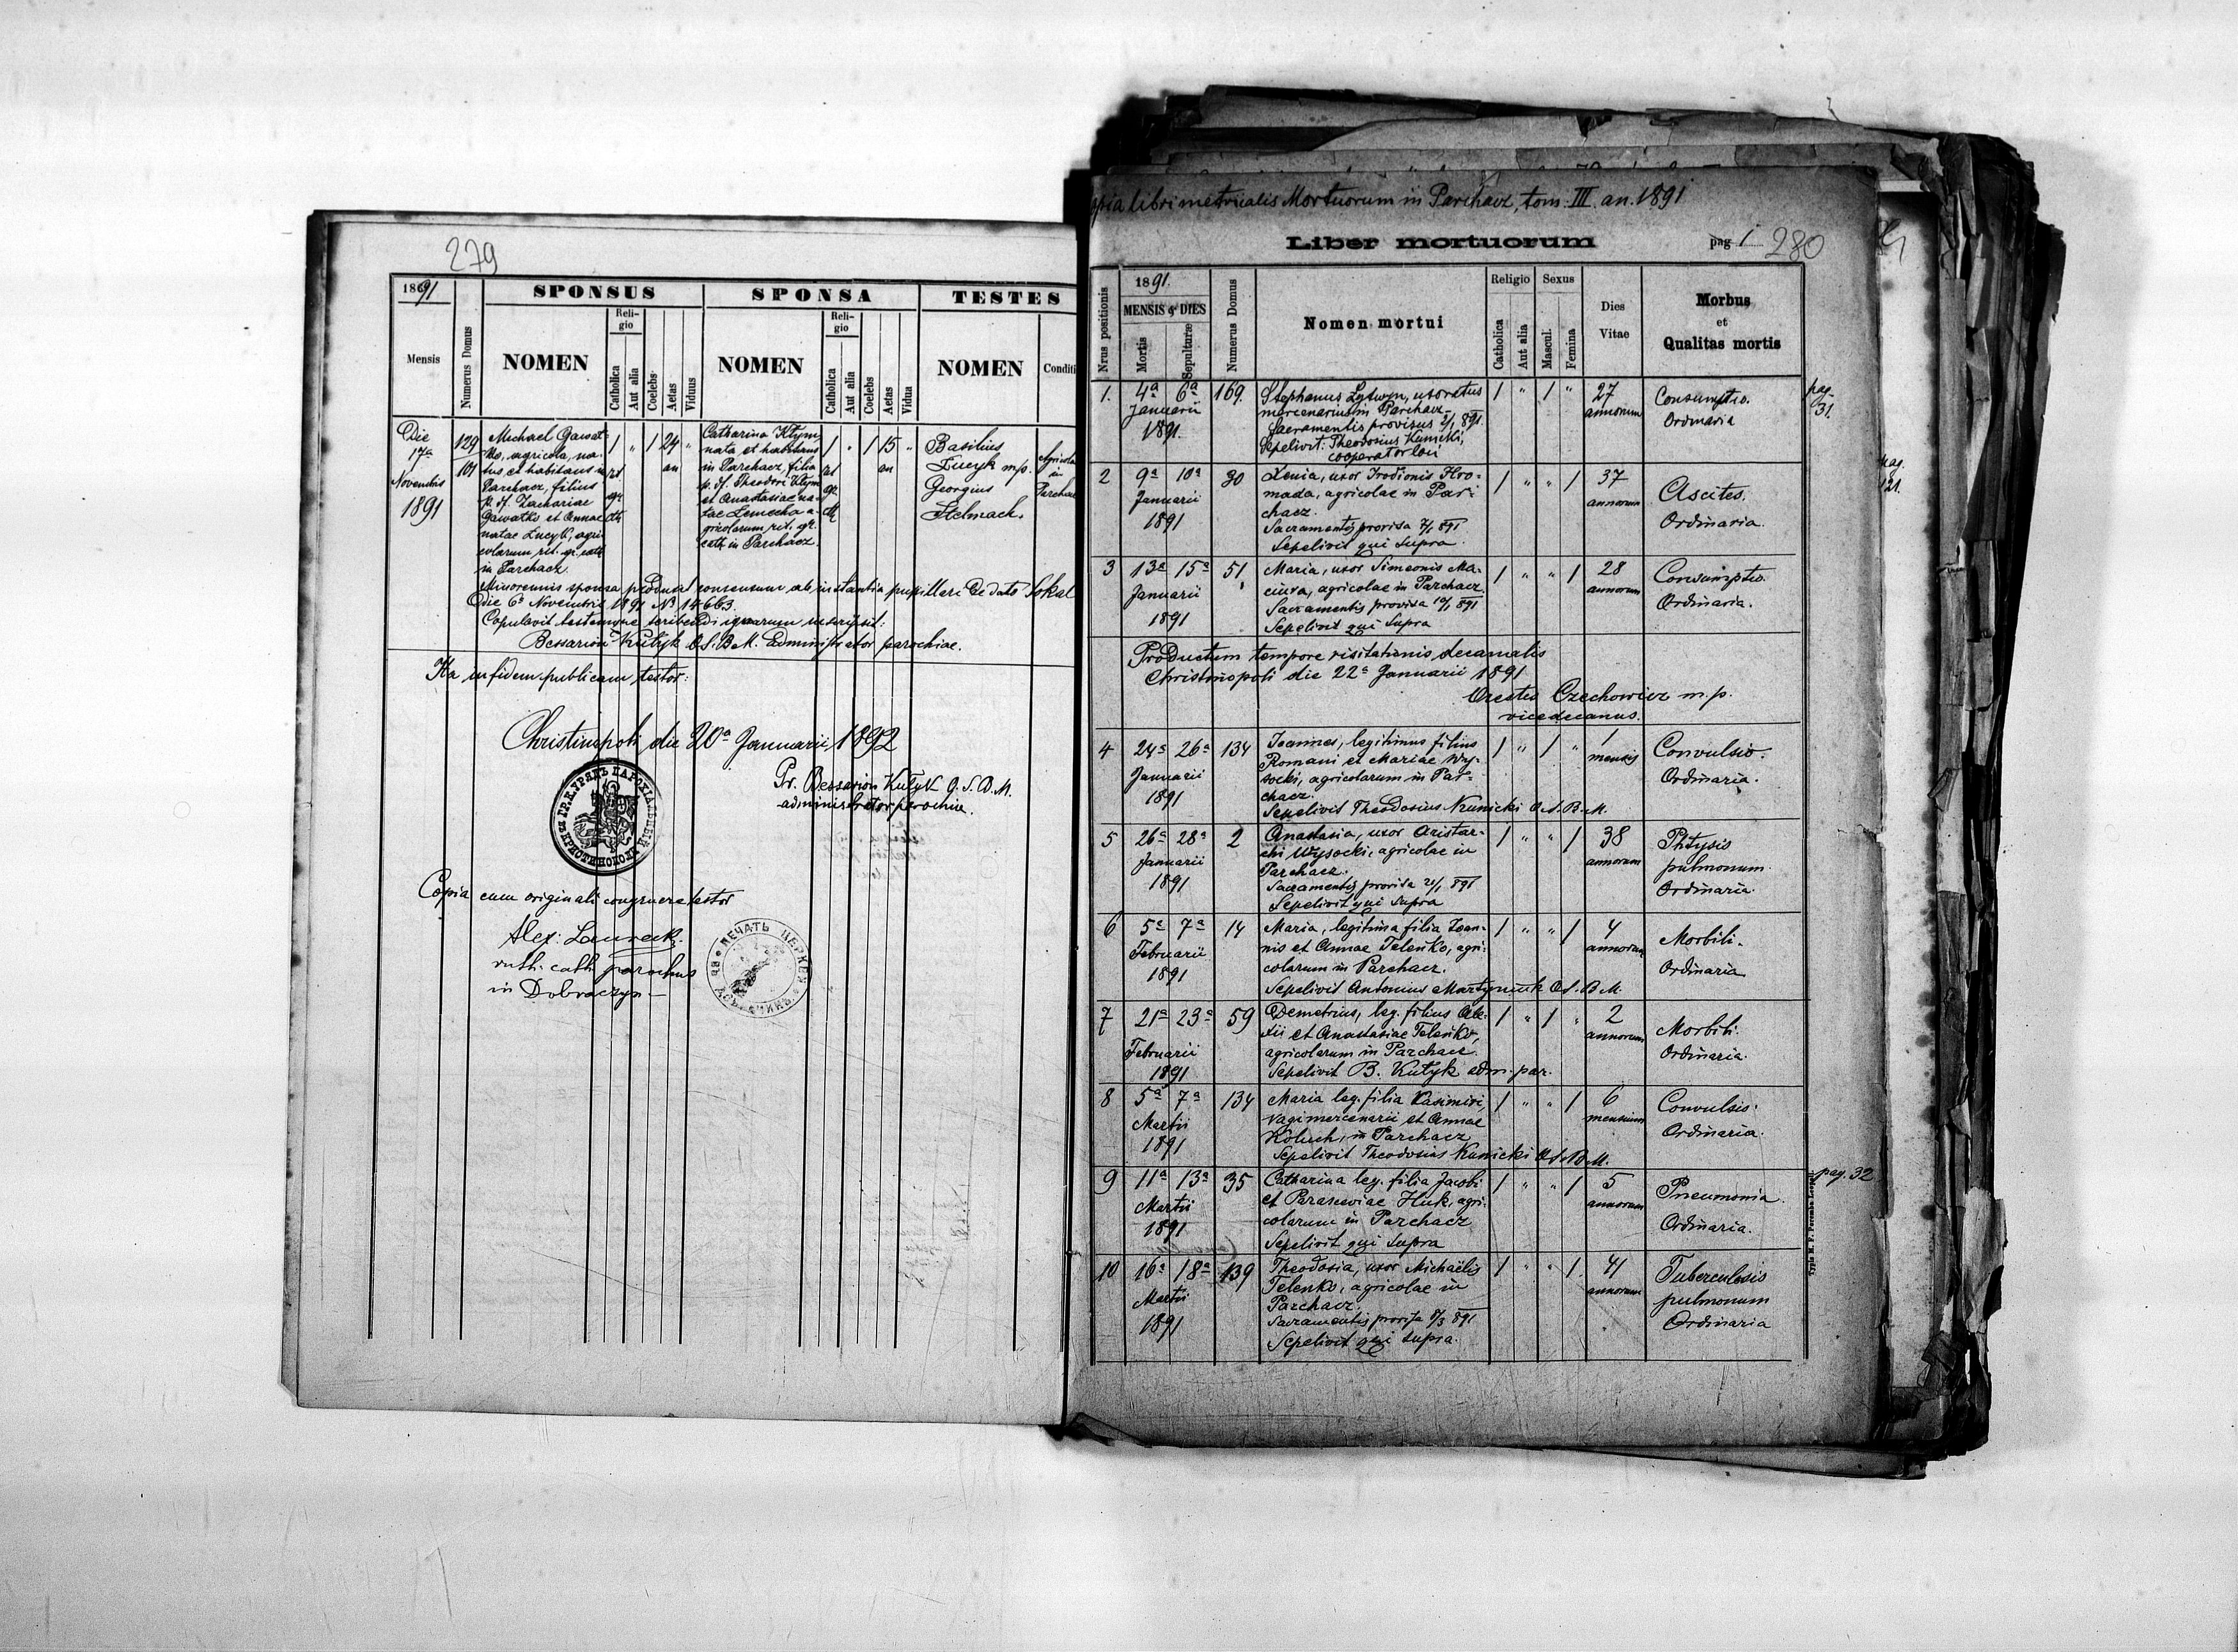 279
1891
SPONSUS
SPONSA
TESTES
Mensis
Numerus Domus
NOMEN
Religio
Catholica
Aut alia
Coelebs
Aetas
Viduus
NOMEN
Religio
Catholica
Aut alia
Coelebs
Aetas
Vidua
NOMEN
Conditi
Die
17a
Novembris
1891
129
101
Michael Gawat-
ko, agricola, na-
tus et habitans in
Parchacz, filius
p. d. Zachariae
Gawatko et Annae
natae Lucyk, agri-
colarum rit. gr. cath
in Parchacz
1
rit
gr.
cth
"
1
24
an
"
Catharina Klym,
nata et habitans
in Parchacz, filia
p. d. Theodori Klym
et Anastasiae na-
tae Lemecha a-
gricolarum rit. gr.
cath in Parchacz.
1
rit
gr.
cth
"
1
15
an
"
Basilius
Lucyk m/p.
Georgius
Stelmach.
Agricola
in
Parchac
Minorennis sponsa produxit consensum ab instantia pupillari de dato Sokal
die 6a Novembris 1891 No 14663.
Copulavit testemque scribendi ignarum inscripsit:
Bessarion Kutyk O.S.B.M. Administrator parochiae.
Ita in fidem publicam testor:
Christinopoli die 20a Januarii 1892
Pr. Bessarion Kutyk O.S.B.M.
administrator parochiae.
Copia cum originali congruere testor
Alex: Laurecki
ruth. cath. parochus
in Dobraczyn
pia libri metricalis Mortuorum in Parchacz, tom: III. an. 1891
Liber mortuorum
pag 1
280
Nrus positionis
1891.
MENSIS et DIES
Mortis
Sepulturæ
Numerus Domus
Nomen mortui
Religio
Catholica
Aut alia
Sexus
Mascul.
Femina
Dies
Vitae
Morbus
et
Qualitas mortis
1. 4a 6a 169. Stephanus Lytwyn, uxoratus 1 " 1 " 27 Consumptio.
Januarii mercenarius in Parchacz. annorum Ordinaria
1891. Sacramentis provisus 2/1 891.
Sepelivit: Theodosius Kunicki,
cooperator loci
pag.
31.
2 9a 10a 30 Xenia, uxor Irodionis Hro- 1 " " 1 37 Ascites.
Januarii mada, agricolae in Par- annorum Ordinaria.
1891 chacz.
Sacramentis provisa 7/1 891
Sepelivit qui supra.
pag.
121.
3 13a 15a 51 Maria, uxor Simeonis Ma- 1 " " 1 28 Consumptio.
Januarii ciura, agricolae in Parchacz. annorum Ordinaria.
1891 Sacramentis provisa 10/1 891
Sepelivit qui supra
Productum tempore visitationis decanalis
Christinopoli die 22a Januarii 1891
Orestes Czechowicz m.p.
vicedecanus.
4 24a 26a 134 Joannes, legitimus filius 1 " 1 " 1 Convulsio.
Januarii Romani et Mariae Wy- mensis Ordinaria.
1891 socki, agricolarum in Par-
chacz.
Sepelivit Theodosius Kunicki O.S.B.M.
5 26a 28a 2 Anastasia, uxor Aristar- 1 " " 1 38 Phtysis
Januarii chi Wysocki, agricolae in annorum pulmonum.
1891 Parchacz. Ordinaria.
Sacramentis provisa 21/1 891
Sepelivit qui supra
6 5a 7a 14 Maria, legitima filia Joan- 1 " " 1 4 Morbili.
Februarii nis et Annae Teleńko, agri- annorum Ordinaria
1891 colarum in Parchacz.
Sepelivit Antonius Martyniuk O.S.B.M.
7 21a 23a 59 Demetrius, leg. filius Ale- 1 " 1 " 2 Morbili.
Februarii xii et Anastasiae Teleńko, annorum Ordinaria.
1891 agricolarum in Parchacz.
Sepelivit B. Kutyk adm. par.
8 5a 7a 134 Maria leg. filia Kasimiri, 1 " " 1 6 Convulsio.
Martii vagi mercenarii et Annae mensium Ordinaria.
1891 in Parchacz
Sepelivit Theodosius Kunicki O.S.B.M.
9 11a 13a 35 Catharina leg. filia Jacobi 1 " " 1 5 Pneumonia
Martii et Parasceviae Huk, agri- annorum Ordinaria.
1891 colarum in Parchacz
Sepelivit qui supra
pag. 32
10 16a 18a 139 Theodosia, uxor Michaëlis 1 " " 1 41 Tuberculosis
Martii Telenko, agricolae in annorum pulmonum
1891 Parchacz. Ordinaria
Sacramentis provisa 8/3 891
Sepelivit qui supra.